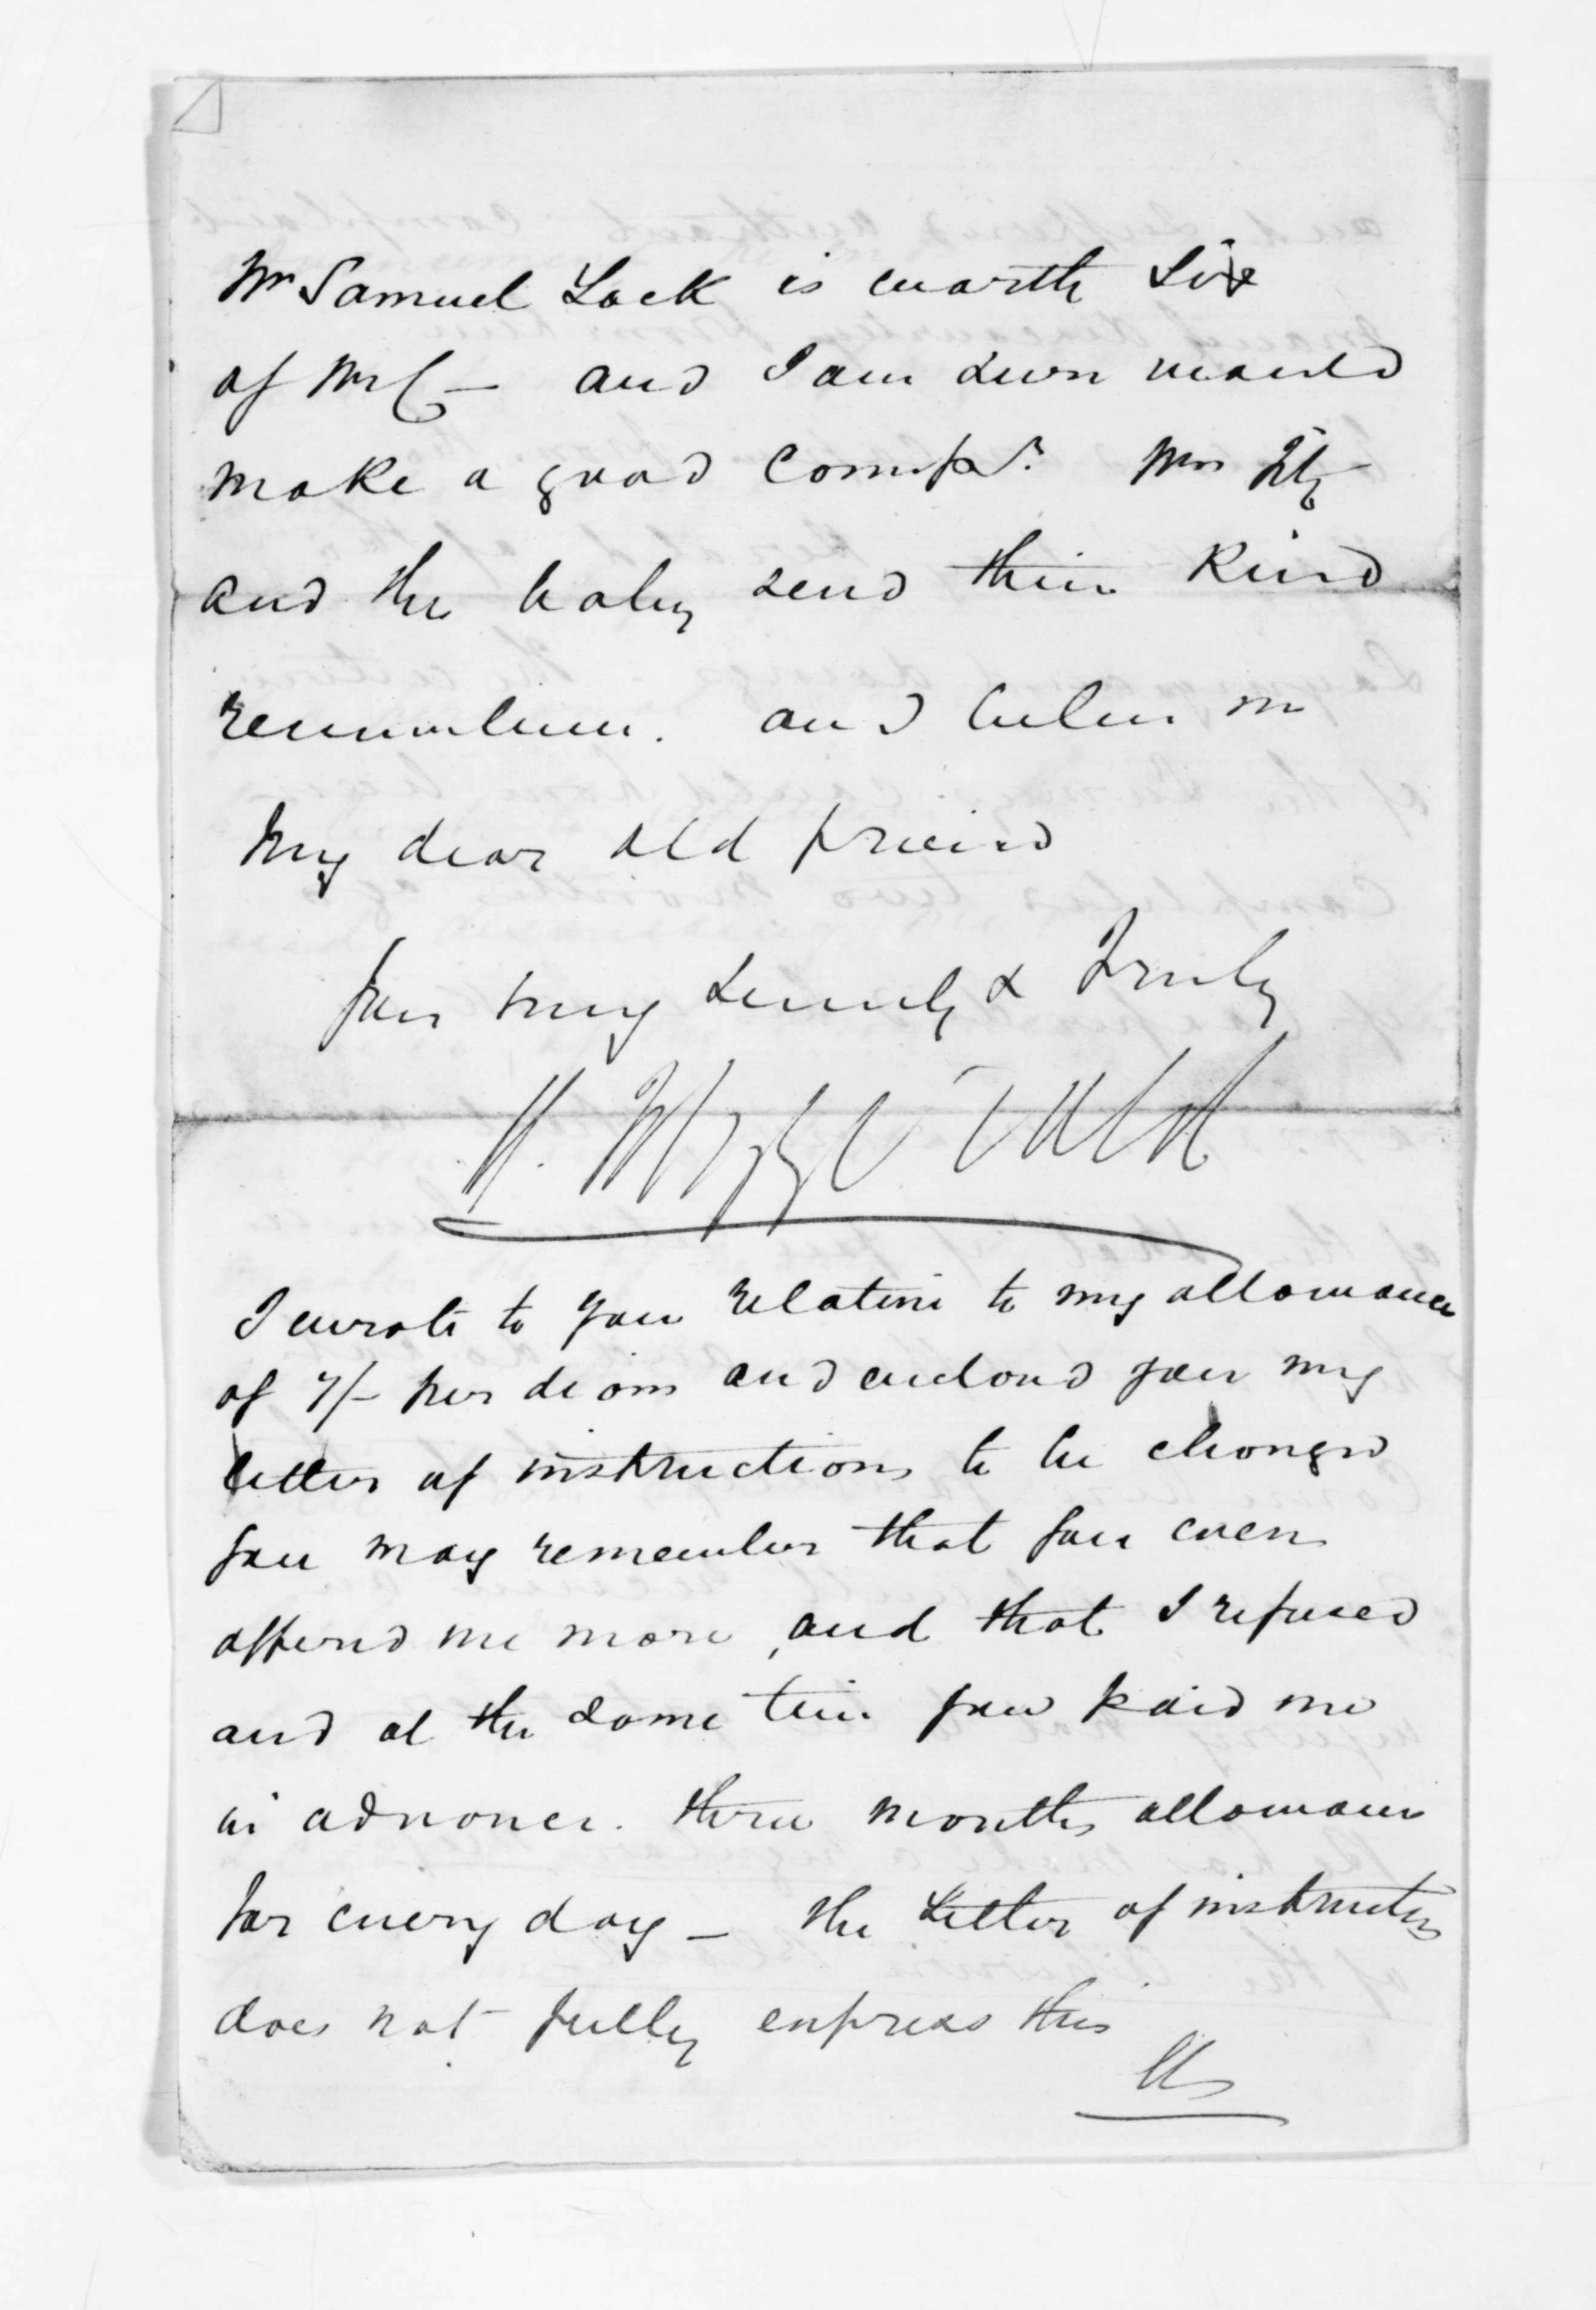 Mr Samuel Lock is worth Six
of Mr C— and I am sure would
make a good Compr. Mrs Fitz
and the baby send their kind
remembrance. and believe me
My dear old friend
Yours very sincerely & Truly
M. Fitzgerald
I wrote to you relative to my allowance
of 7/- per diem and enclosed you my
letter of instructions to be changed
you may remember that you even
offered me more, and that I refused
and at the same time you paid me
in advance. three months allowance
for every day — the Letter of instructions
does not fully express this